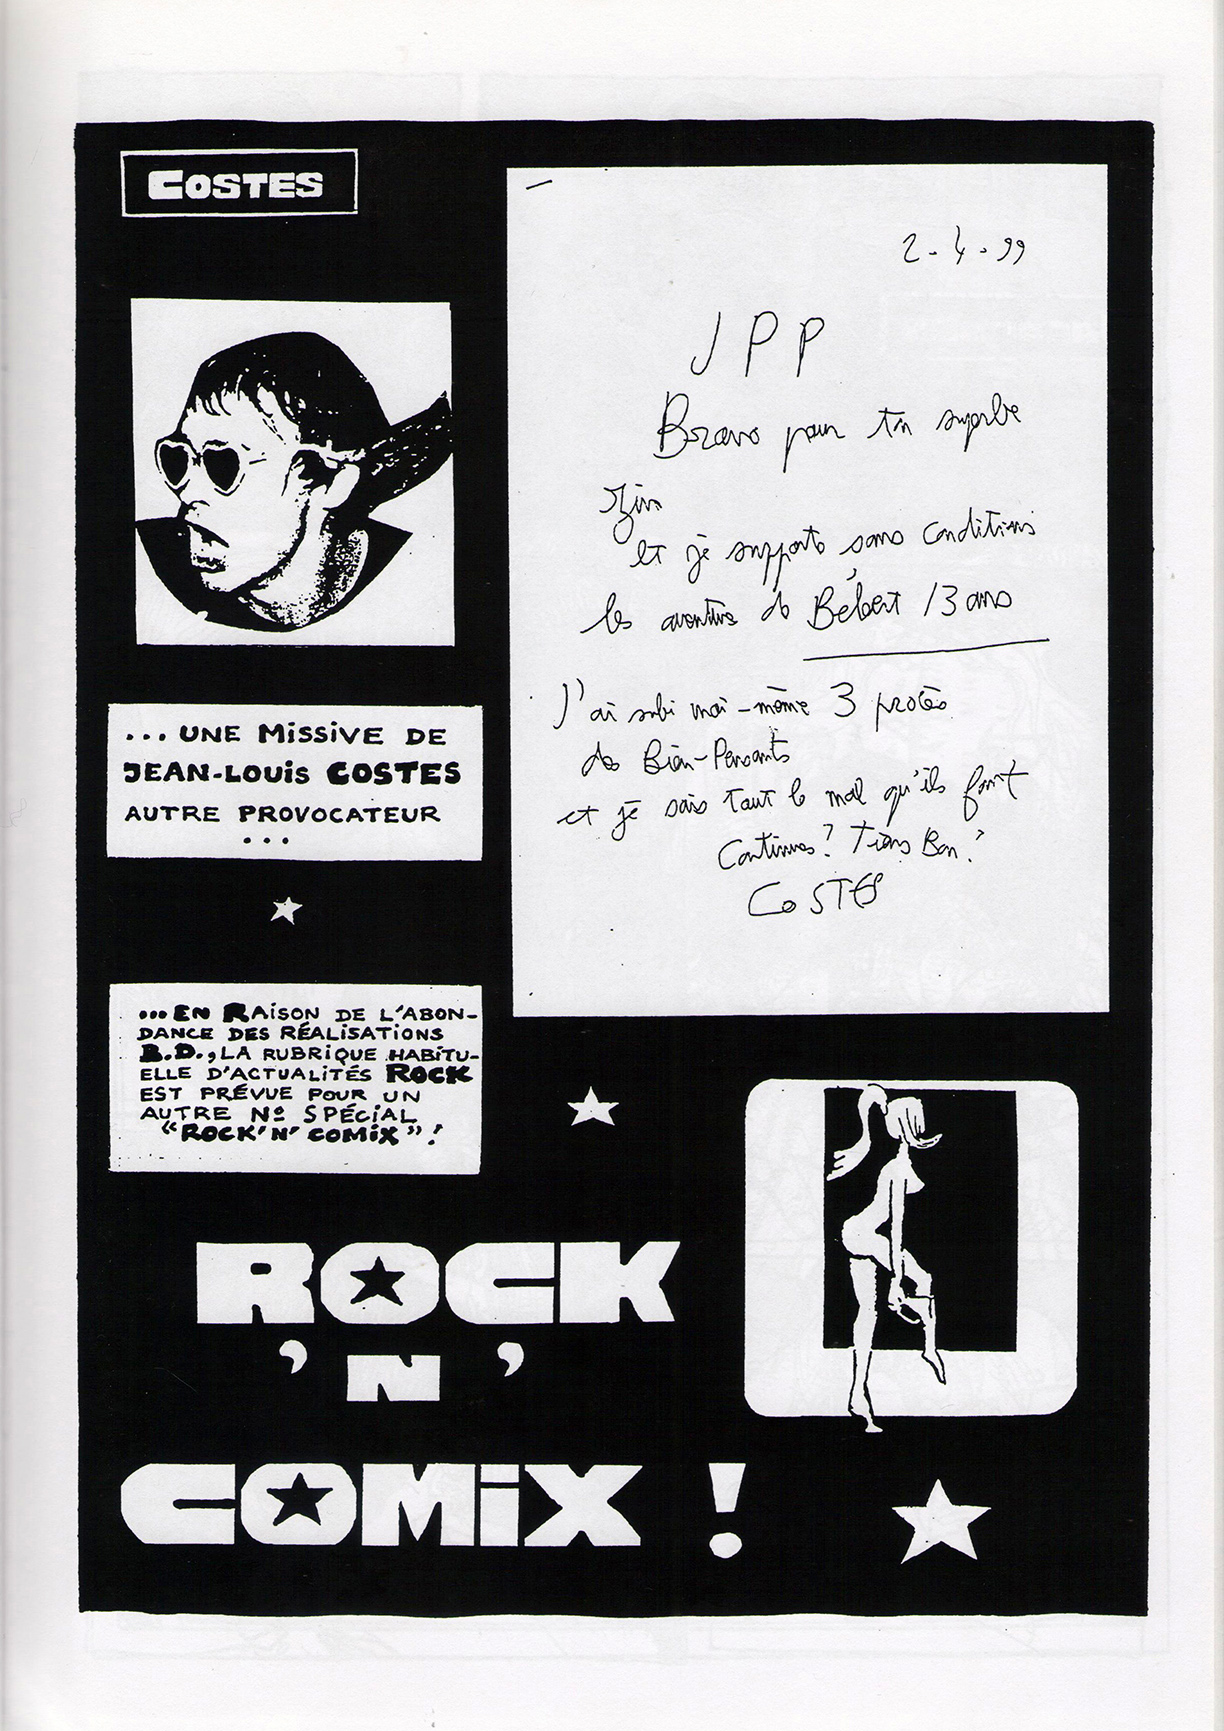 COSTES
2.4.99
JPP
Bravo pour ton superbe
zine
et je supporte sans conditions
les aventures de Bébert 13 ans
J'ai subi moi-même 3 procès
de Bien-Pensants
et je sais tout le mal qu'ils font
Continues! Tiens Bon!
COSTES
...UNE MiSSiVE DE
JEAN-LOUiS COSTES
AUTRE PROVOCATEUR
...
...EN RAiSON DE L'ABON-
DANCE DES RÉALiSATiONS
B.D., LA RUBRiQUE HABiTU-
ELLE D'ACTUALiTÉS ROCK
EST PRÉVUE POUR UN
AUTRE Nº SPÉCiAL
"ROCK'N'COMiX"!
ROCK
'N'
COMiX !